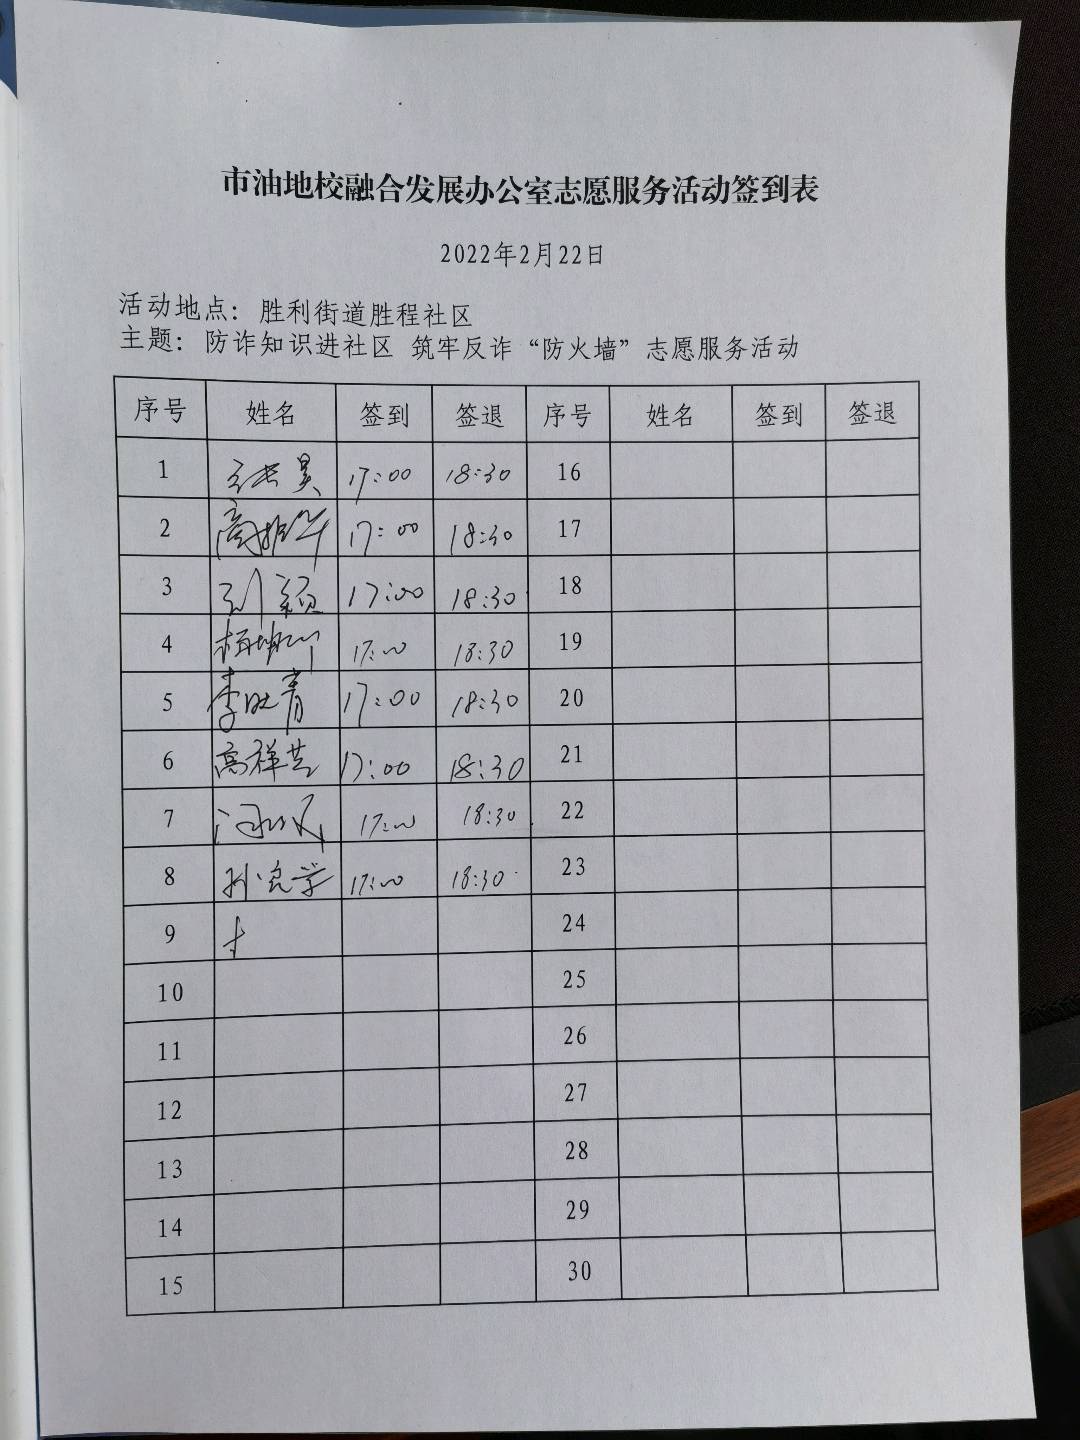 市油地校融合发展办公室志愿服务活动签到表
2022年2月22日
活动地点：胜利街道胜程社区
主题：防诈知识进社区 筑牢反诈“防火墙”志愿服务活动
序号 姓名 签到 签退 序号 姓名 签到 签退
1 张昊 17:00 18:30 16
2 高振华 17:00 18:30 17
3 刘颖 17:00 18:30 18
4 17:00 18:30 19
5 李 青 17:00 18:30 20
6 高祥芸 17:00 18:30 21
7 17:00 18:30 22
8 孙 学 17:00 18:30 23
9 24
10 25
11 26
12 27
13 28
14 29
15 30